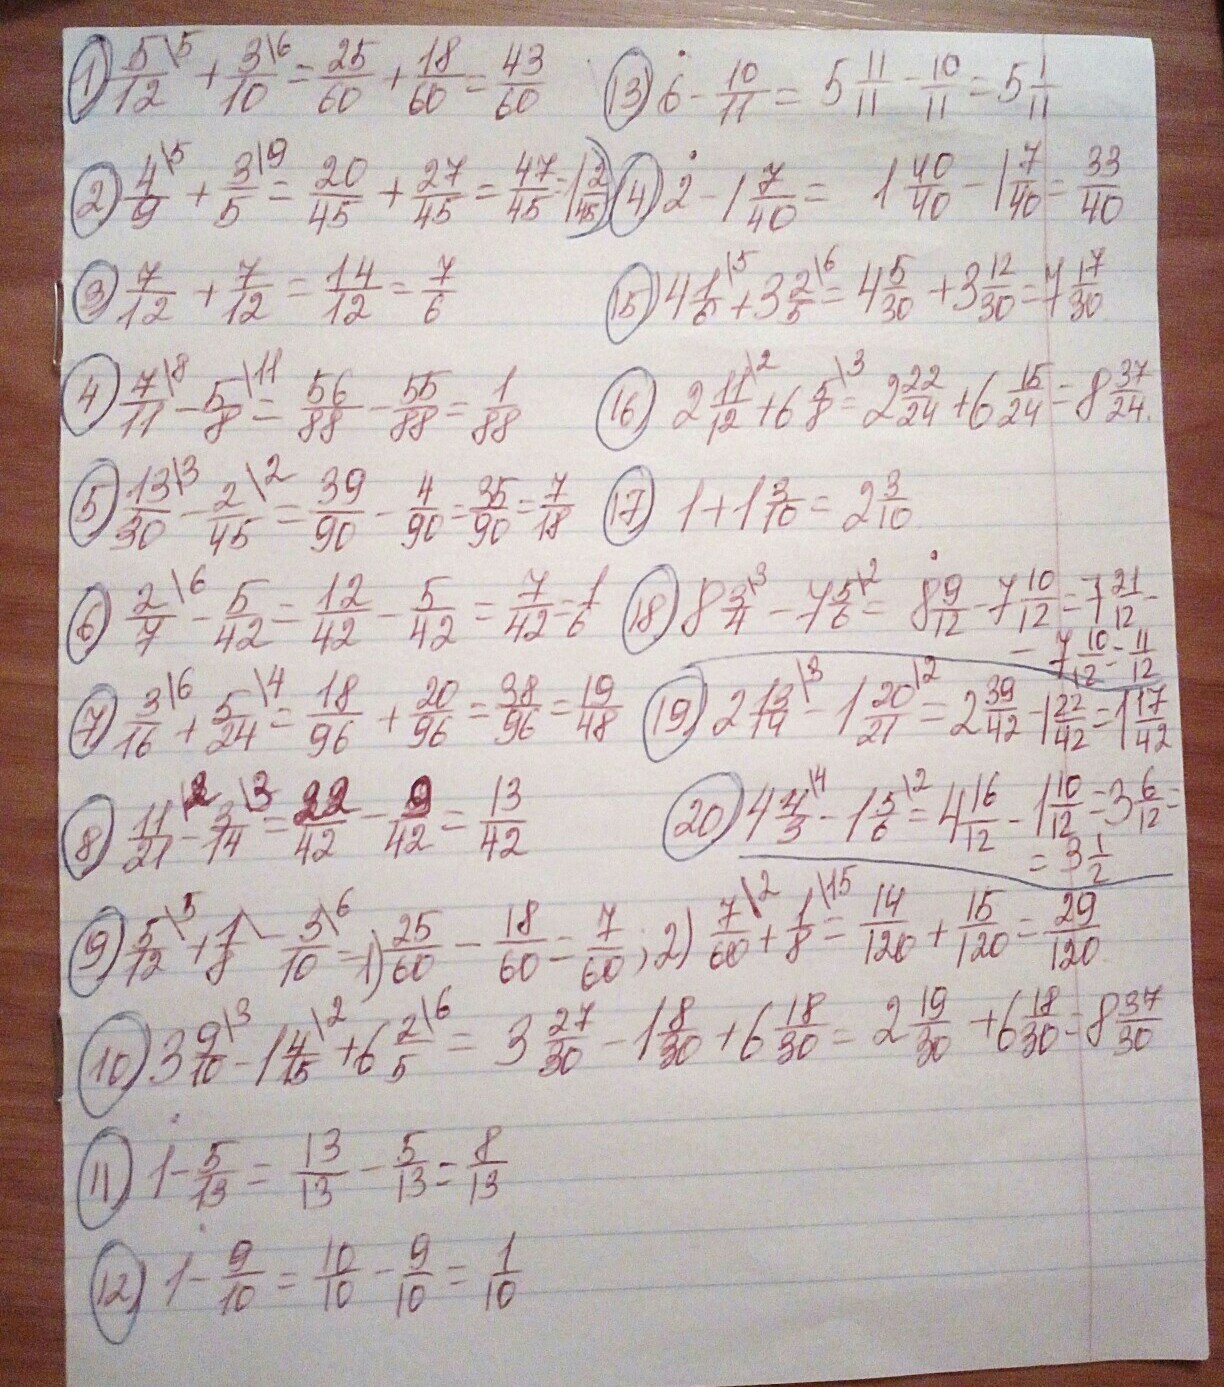 1) 5/12 \5 + 3/10 \6 = 25/60 + 18/60 = 43/60
2) 4/9 \5 + 3/5 \9 = 20/45 + 27/45 = 47/45 = 1 2/45
3) 7/12 + 7/12 = 14/12 = 7/6
4) 7/11 \8 - 5/8 \11 = 56/88 - 55/88 = 1/88
5) 13/30 \3 - 2/45 \2 = 39/90 - 4/90 = 35/90 = 7/18
6) 2/7 \6 - 5/42 = 12/42 - 5/42 = 7/42 = 1/6
7) 3/16 \6 + 5/24 \4 = 18/96 + 20/96 = 38/96 = 19/48
8) 11/21 \2 - 3/14 \3 = 22/42 - 9/42 = 13/42
9) 5/12 \5 + 1/8 \ - 3/10 \6 = 1) 25/60 - 18/60 = 7/60; 2) 7/60 \2 + 1/8 \15 = 14/120 + 15/120 = 29/120
10) 3 9/10 \3 - 1 4/15 \2 + 6 2/5 \6 = 3 27/30 - 1 8/30 + 6 18/30 = 2 19/30 + 6 18/30 = 8 37/30
11) 1 - 5/13 = 13/13 - 5/13 = 8/13
12) 1 - 9/10 = 10/10 - 9/10 = 1/10
13) 6 - 10/11 = 5 11/11 - 10/11 = 5 1/11
14) 2 - 1 7/40 = 1 40/40 - 1 7/40 = 33/40
15) 4 1/6 \5 + 3 2/5 \6 = 4 5/30 + 3 12/30 = 7 17/30
16) 2 11/12 \2 + 6 5/8 \3 = 2 22/24 + 6 15/24 = 8 37/24.
17) 1 + 1 3/10 = 2 3/10
18) 8 3/4 \3 - 7 5/6 \2 = 8 9/12 - 7 10/12 = 7 21/12 -
- 7 10/12 = 11/12
19) 2 13/14 \3 - 1 20/21 \2 = 2 39/42 - 1 22/42 = 1 17/42
20) 4 4/3 \4 - 1 5/6 \2 = 4 16/12 - 1 10/12 = 3 6/12 =
= 3 1/2